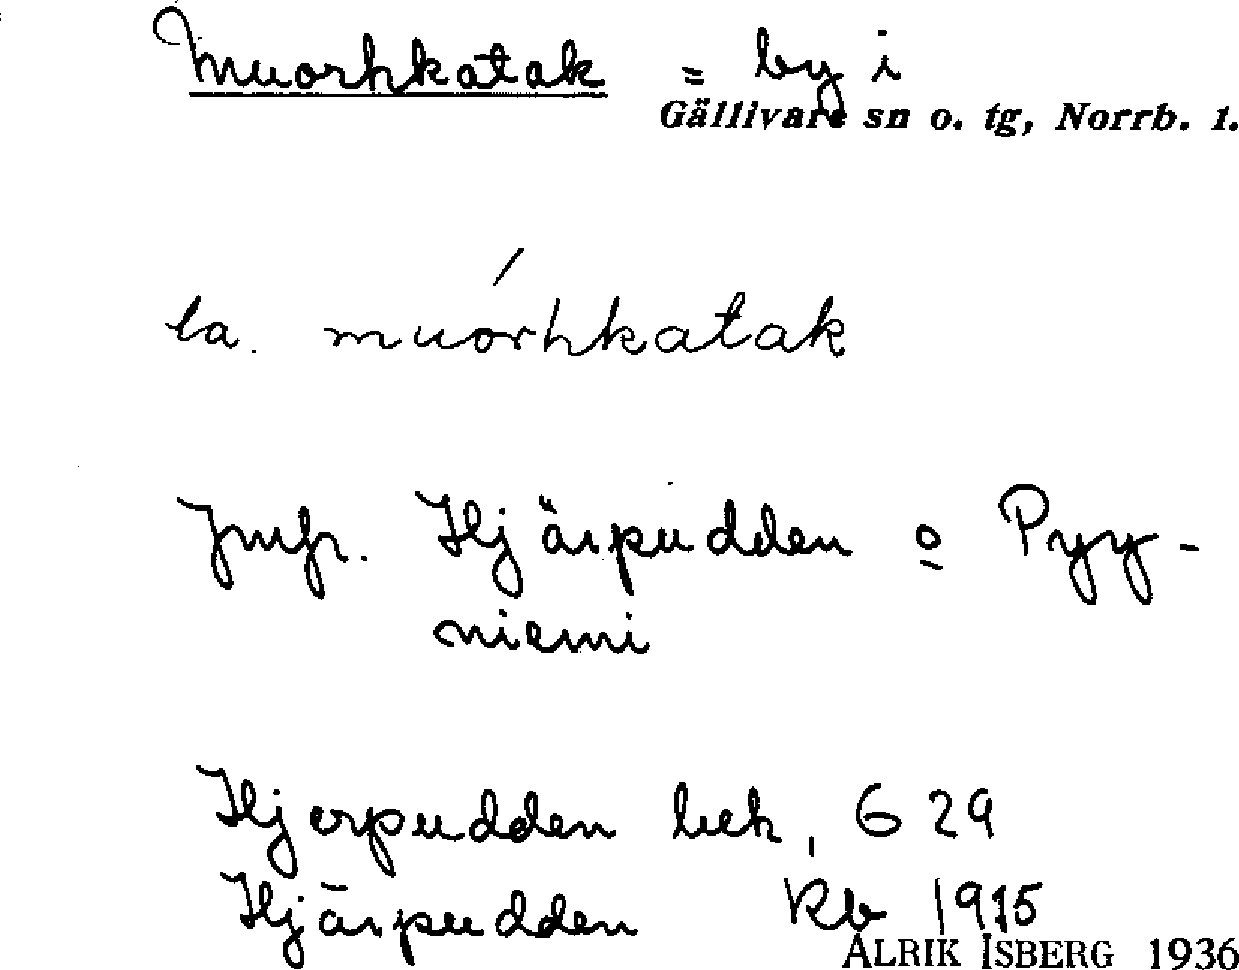 Muorhkatak = by i
Gällivare sn o. tg, Norrb. 1.
la. muórhkatak
Jmfr. Hjärpudden o Pyy-
niemi
Hjerpudden bek, G 29
Hjärpudden Kb 1915
ALRIK ISBERG 1936